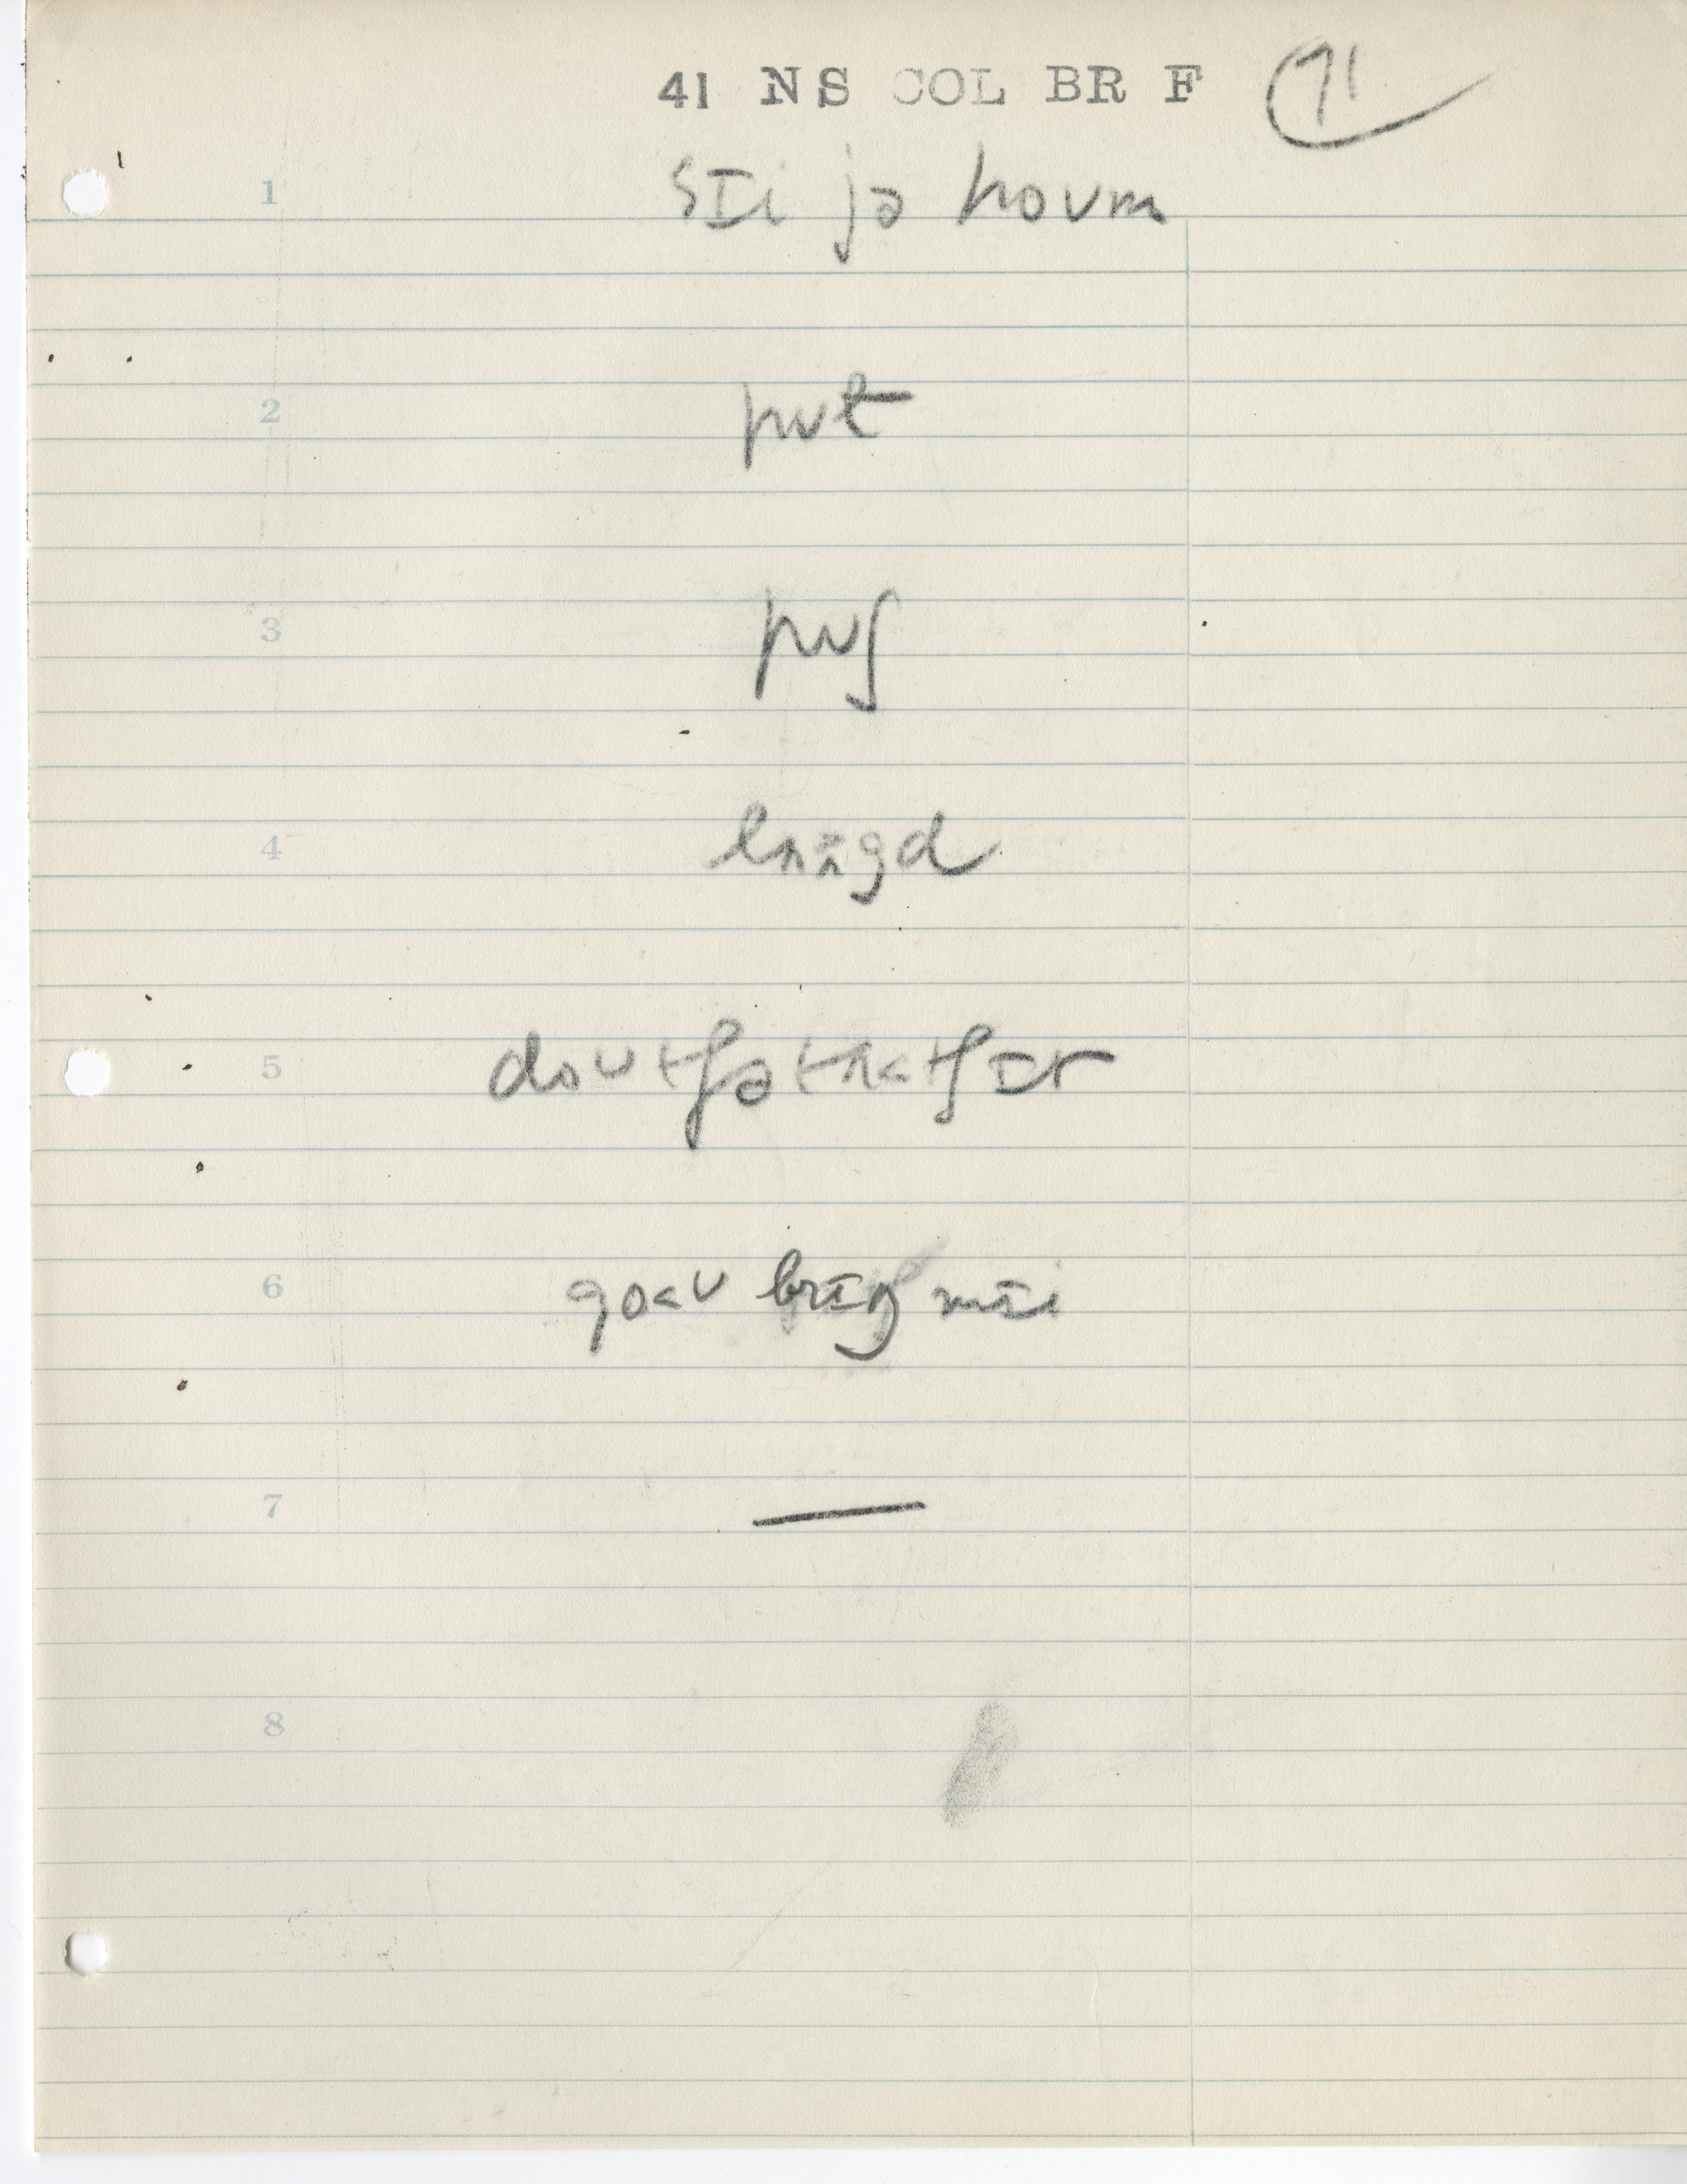 41 NS COL BR F 71
1 sɪi jə hoʊm
2 pʊt
3 pʊʃ
4 lʌʌ̈gd
5 doʊtʃətʌtʃɪt
6 goʊ brɪŋ mɪi
7 —
8